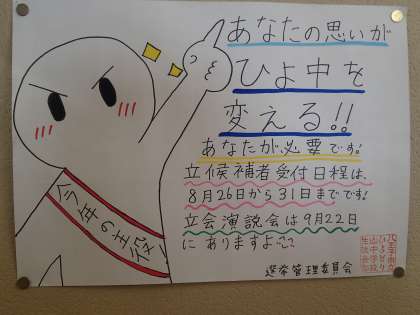 あなたの思いが
ひよ中を
変える!!
あなたが必要です!
立候補者受付日程は、
8月26日から31日までです!
立会演説会は9月22日
にありますよ
選挙管理委員会
今年の主役!